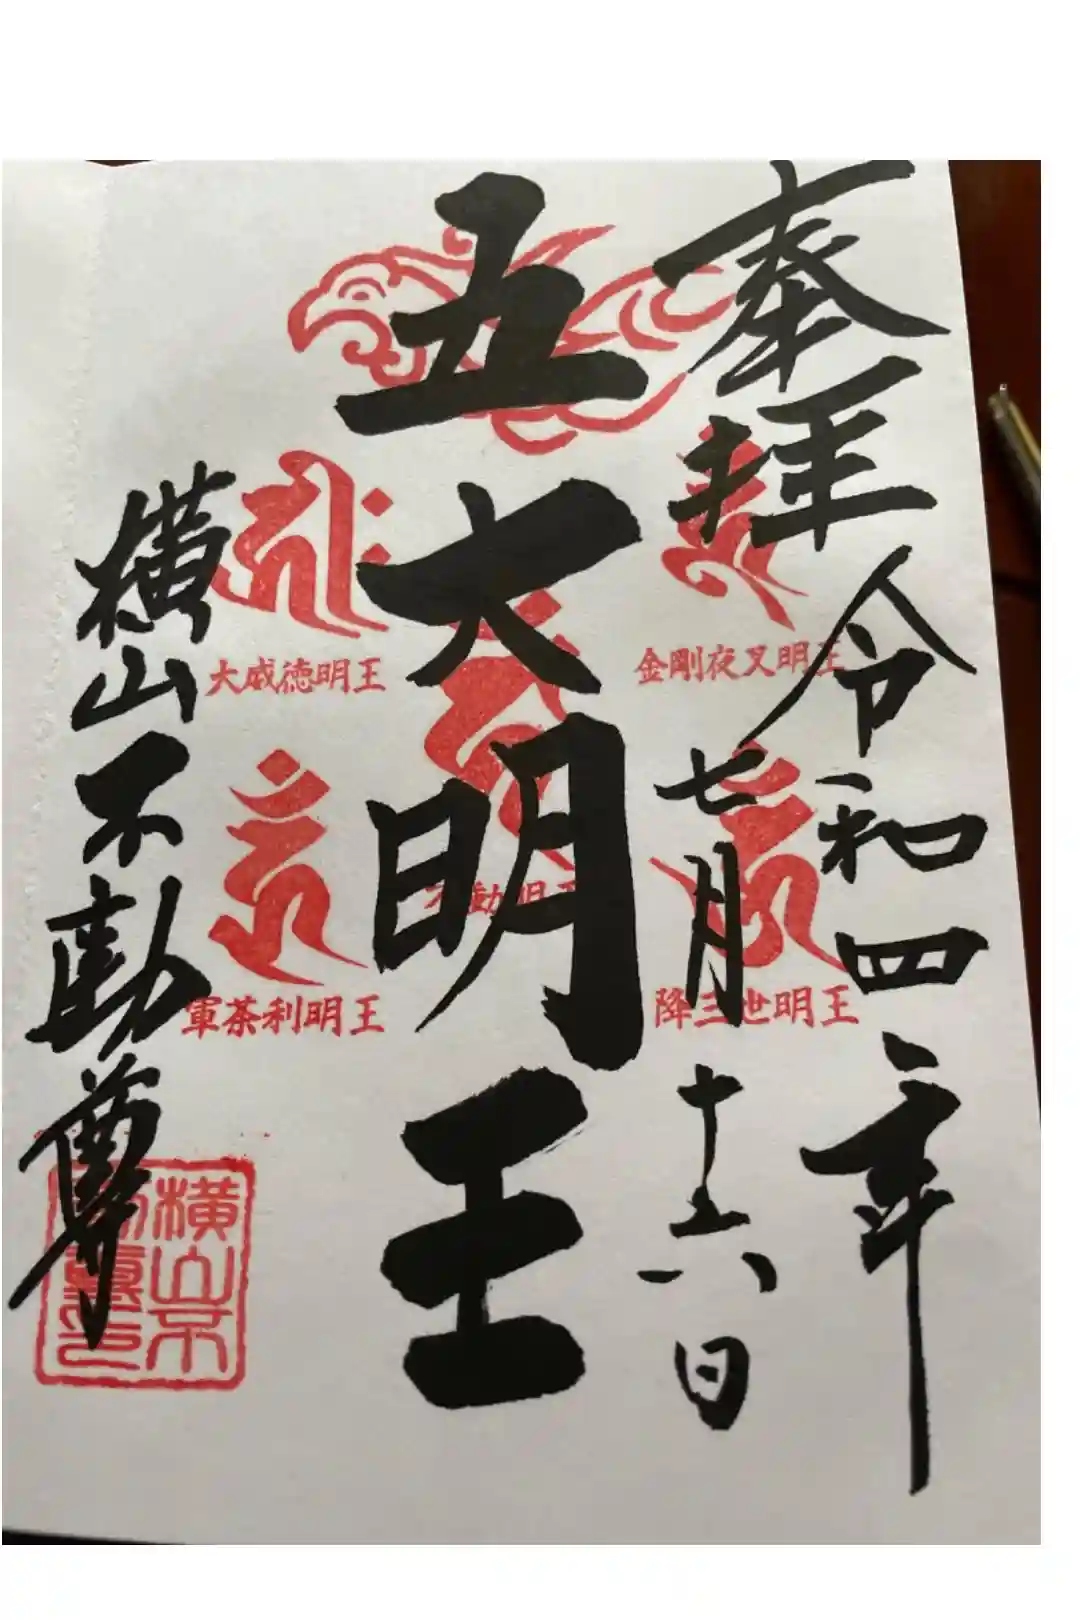 奉拝
令和四年
七月十六日
五大明王
金剛夜叉明王
大威徳明王
不動明王
降三世明王
軍荼利明王
横山不動尊